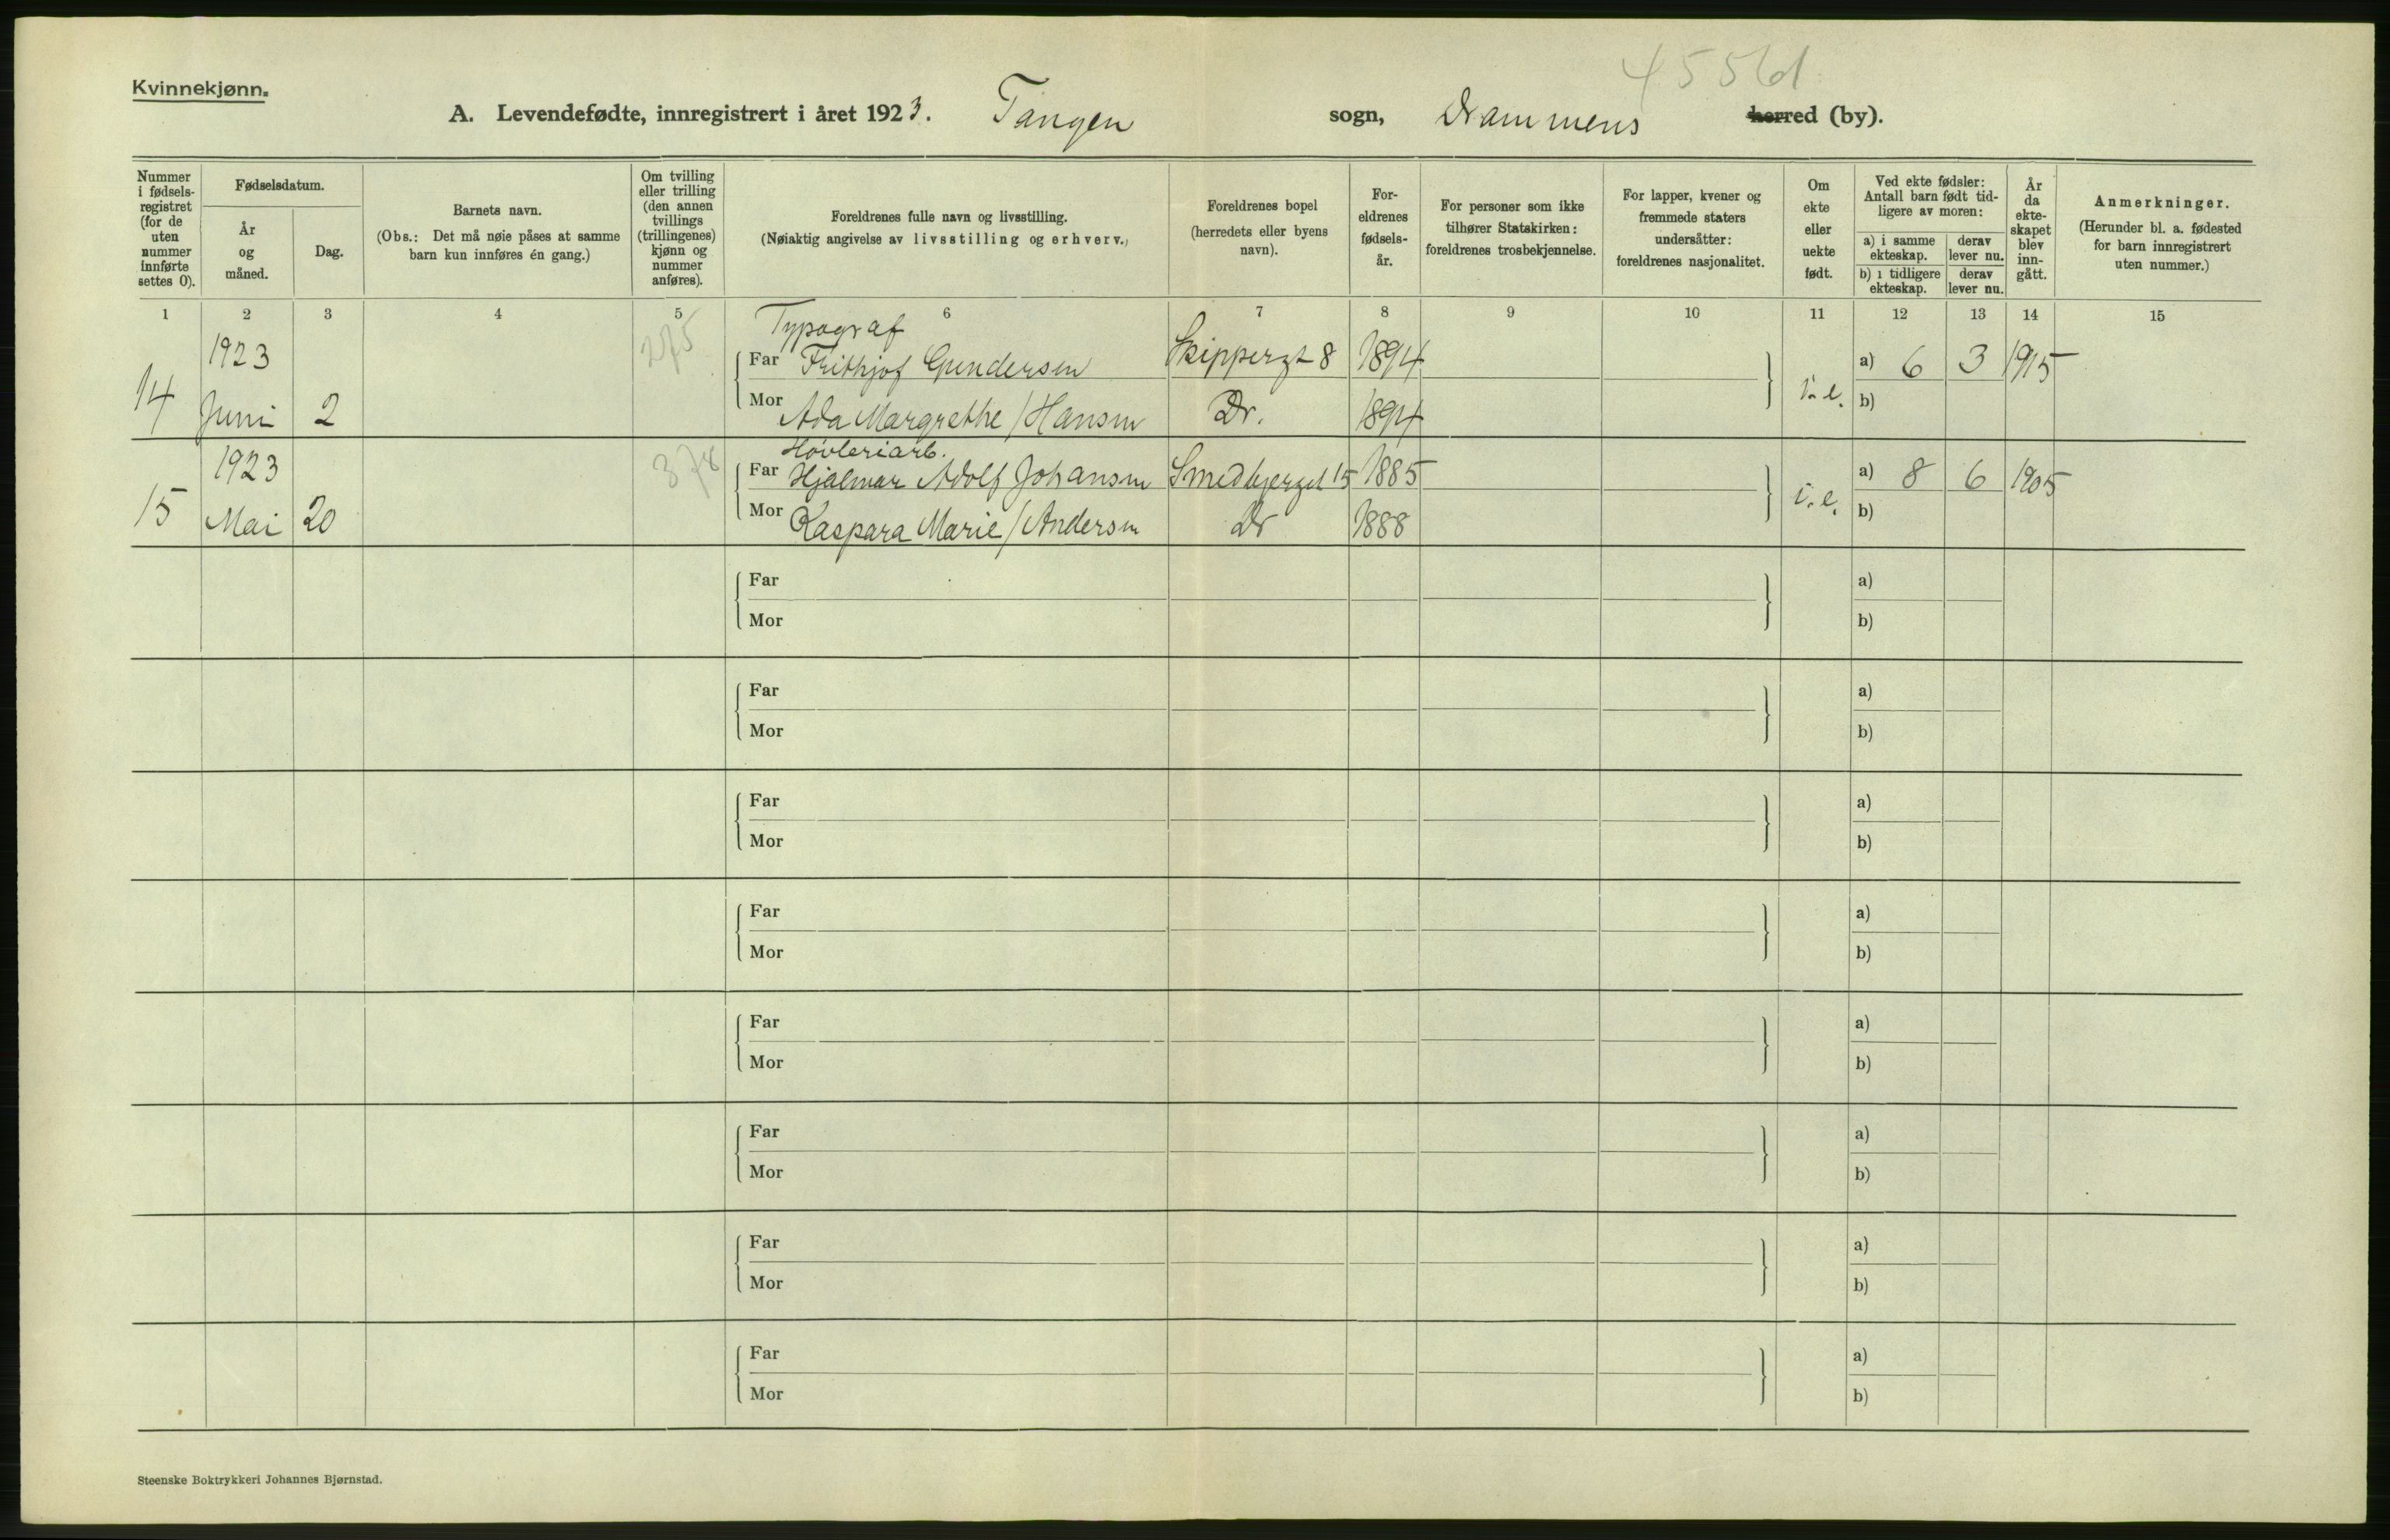 4556d
Kvinnekjønn.
A. Levendefødte, innregistrert i året 1923. Tangen sogn, Drammens herred (by).
Nummer i fødsels- registret (for de uten nummer innførte settes 0).
Fødselsdatum.
År og måned.
Dag.
Barnets navn.
(Obs.: Det må nøie påses at samme barn kun innføres én gang.)
Om tvilling eller trilling (den annen tvillings (trillingenes) kjønn og nummer anføres).
Foreldrenes fulle navn og livsstilling.
(Nøiaktig angivelse av livsstilling og erhverv.)
Foreldrenes bopel (herredets eller byens navn).
For- eldrenes fødsels- år.
For personer som ikke tilhører Statskirken: foreldrenes trosbekjennelse.
For lapper, kvener og fremmede staters undersåtter: foreldrenes nasjonalitet.
Om ekte eller uekte født.
Ved ekte fødsler: Antall barn født tid- ligere av moren:
a) i samme ekteskap.
derav lever nu.
b) i tidligere ekteskap.
derav lever nu.
År da ekte- skapet blev inn- gått.
Anmerkninger.
(Herunder bl. a. fødested for barn innregistrert uten nummer.)
1 2 3 4 5 6 7 8 9 10 11 12 13 14 15
275 Typograf
1923 Far Frithjof Gundersen Skippergt 8 1894 a) 6 3 1915
14 Juni 2 Mor Ada Margrethe / Hansen Dr. 1894 i. e. b)
Høvleriarb.
1923 378 Far Hjalmar Adolf Johansen Smedbjerget 15 1885 a) 8 6 1905
15 Mai 20 Mor Kaspara Marie / Andersen Dr 1888 i. e. b)
Far a)
Mor b)
Far a)
Mor b)
Far a)
Mor b)
Far a)
Mor b)
Far a)
Mor b)
Far a)
Mor b)
Far a)
Mor b)
Far a)
Mor b)
Steenske Boktrykkeri Johannes Bjørnstad.